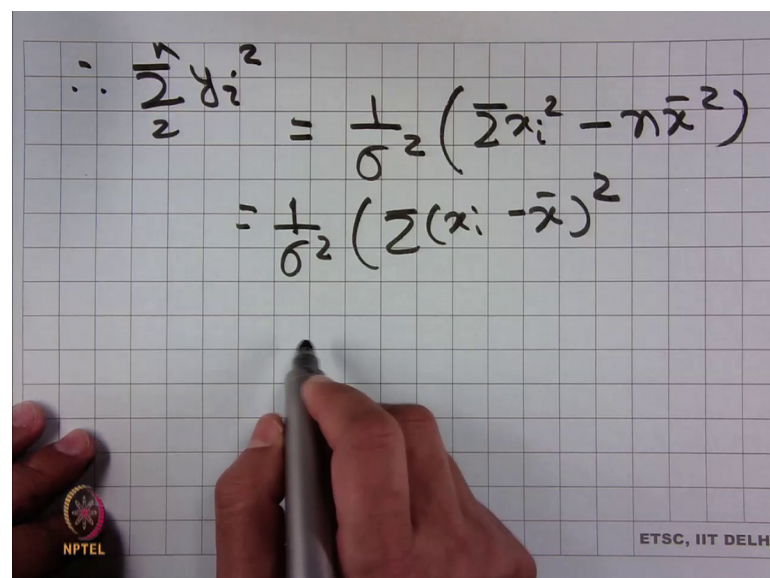 ∴ Σ₂ⁿ yᵢ² = 1/σ² (Σxᵢ² − nx̄²)
= 1/σ² (Σ(xᵢ − x̄)²
NPTEL
ETSC, IIT DELH